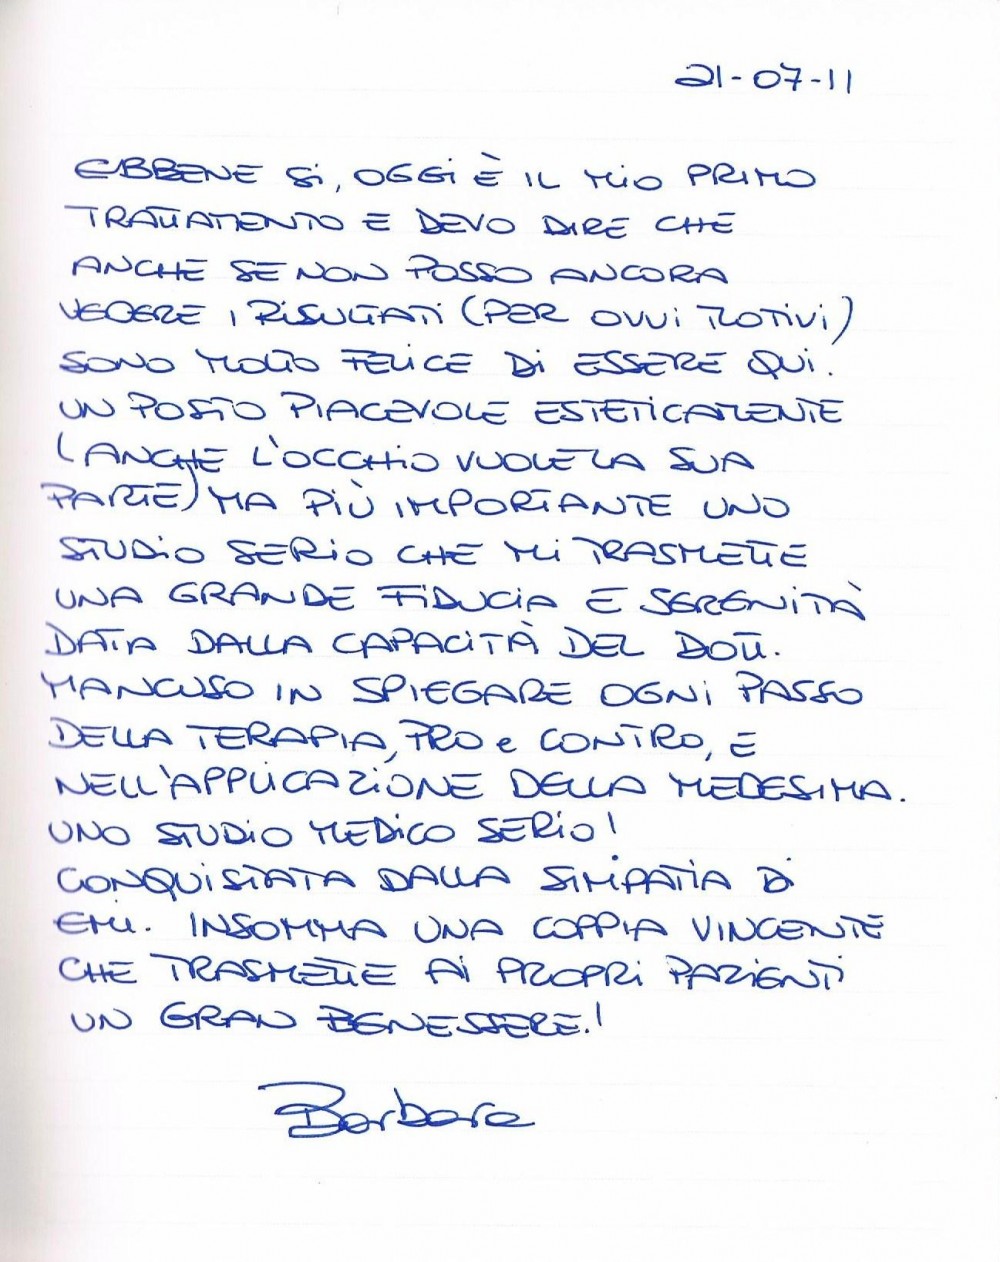 21-07-11
EBBENE Sì, OGGI È IL MIO PRIMO
TRATTAMENTO E DEVO DIRE CHE
ANCHE SE NON POSSO ANCORA
VEDERE I RISULTATI (PER OVVI MOTIVI)
SONO MOLTO FELICE DI ESSERE QUI.
UN POSTO PIACEVOLE ESTETICAMENTE
(ANCHE L'OCCHIO VUOLE LA SUA
PARTE) MA PIÙ IMPORTANTE UNO
STUDIO SERIO CHE MI TRASMETTE
UNA GRANDE FIDUCIA E SERENITÀ
DATA DALLA CAPACITÀ DEL DOTT.
MANCUSO IN SPIEGARE OGNI PASSO
DELLA TERAPIA, PRO e CONTRO, E
NELL'APPLICAZIONE DELLA MEDESIMA.
UNO STUDIO MEDICO SERIO!
CONQUISTATA DALLA SIMPATIA DI
EMI. INSOMMA UNA COPPIA VINCENTE
CHE TRASMETTE AI PROPRI PAZIENTI
UN GRAN BENESSERE.!
Barbara